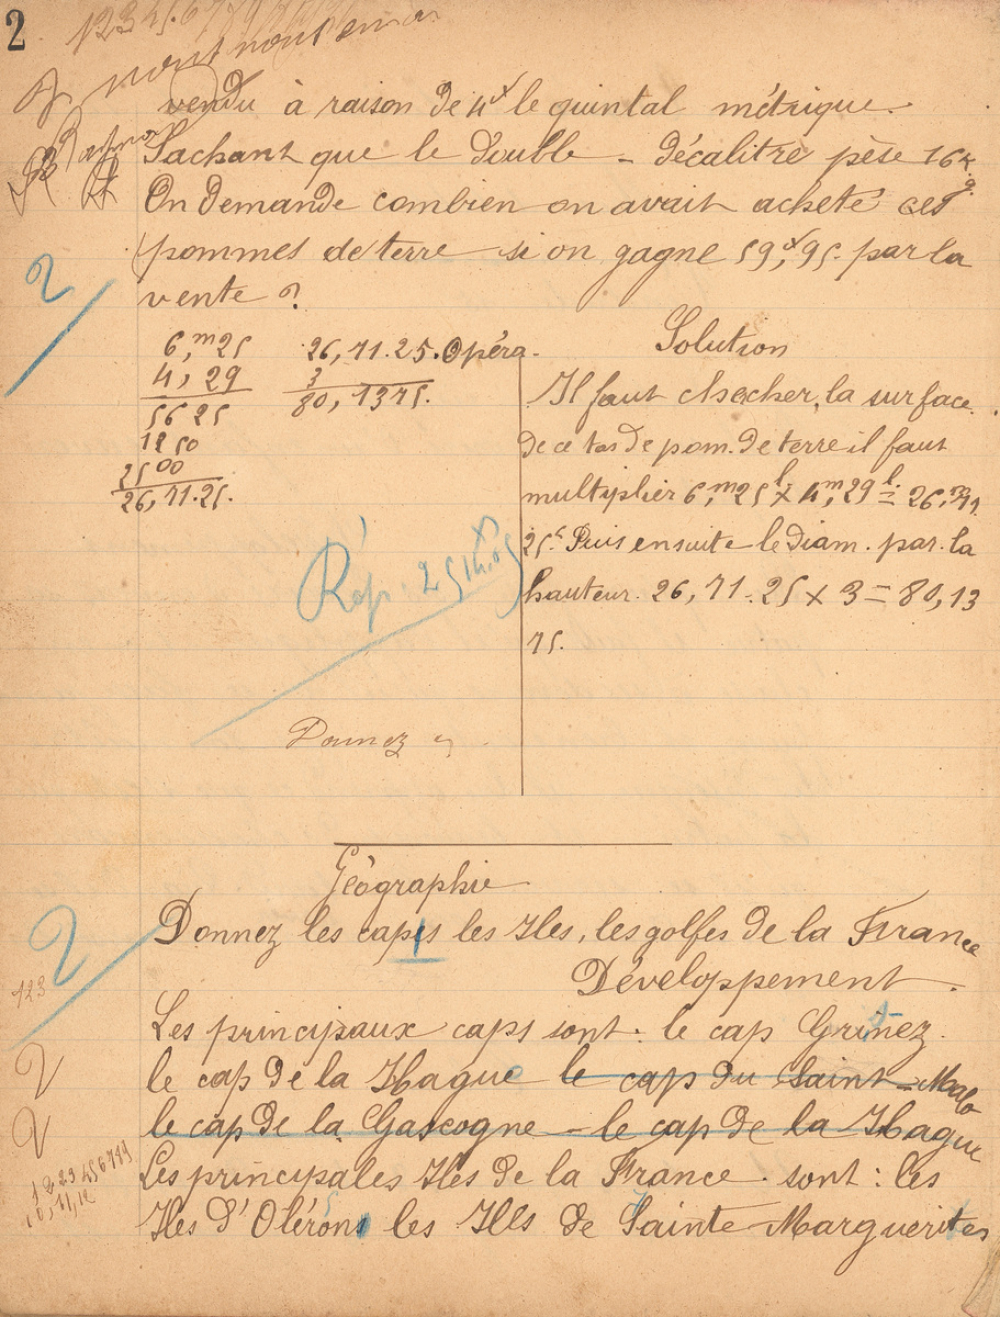 2
vendu à raison de 4f le quintal métrique.
Sachant que le double - décalitre pèse 16k.g.
On demande combien on avait acheté ces
pommes de terre si on gagne 59,f95. par la
vente ?
6,m25
4, 29
5625
1250
2500
26,71.25.
26,71.25. Opéra.
3
80,1375.
Rép : 251
Donnez
Solution
Il faut chercher, la surface.
de ce tas de pom. de terre il faut
multiplier 6,m25 l. x 4,m29 l. = 26,m71
25c Puis ensuite le diam. par. la
hauteur. 26,71.25 x 3 = 80,13
75.
Géographie
2
Donnez les caps les Iles, les golfes de la France
Développement.
123
Les principaux caps sont : le cap Grinez.
le cap de la Hague le cap du Saint-Malo
le cap de la Gascogne - le cap de la Hague
Les principales Iles de la France. sont : les
Iles d'Olérons les Iles de Sainte-Marguerites
1 2 23 456789
10, 11, 12